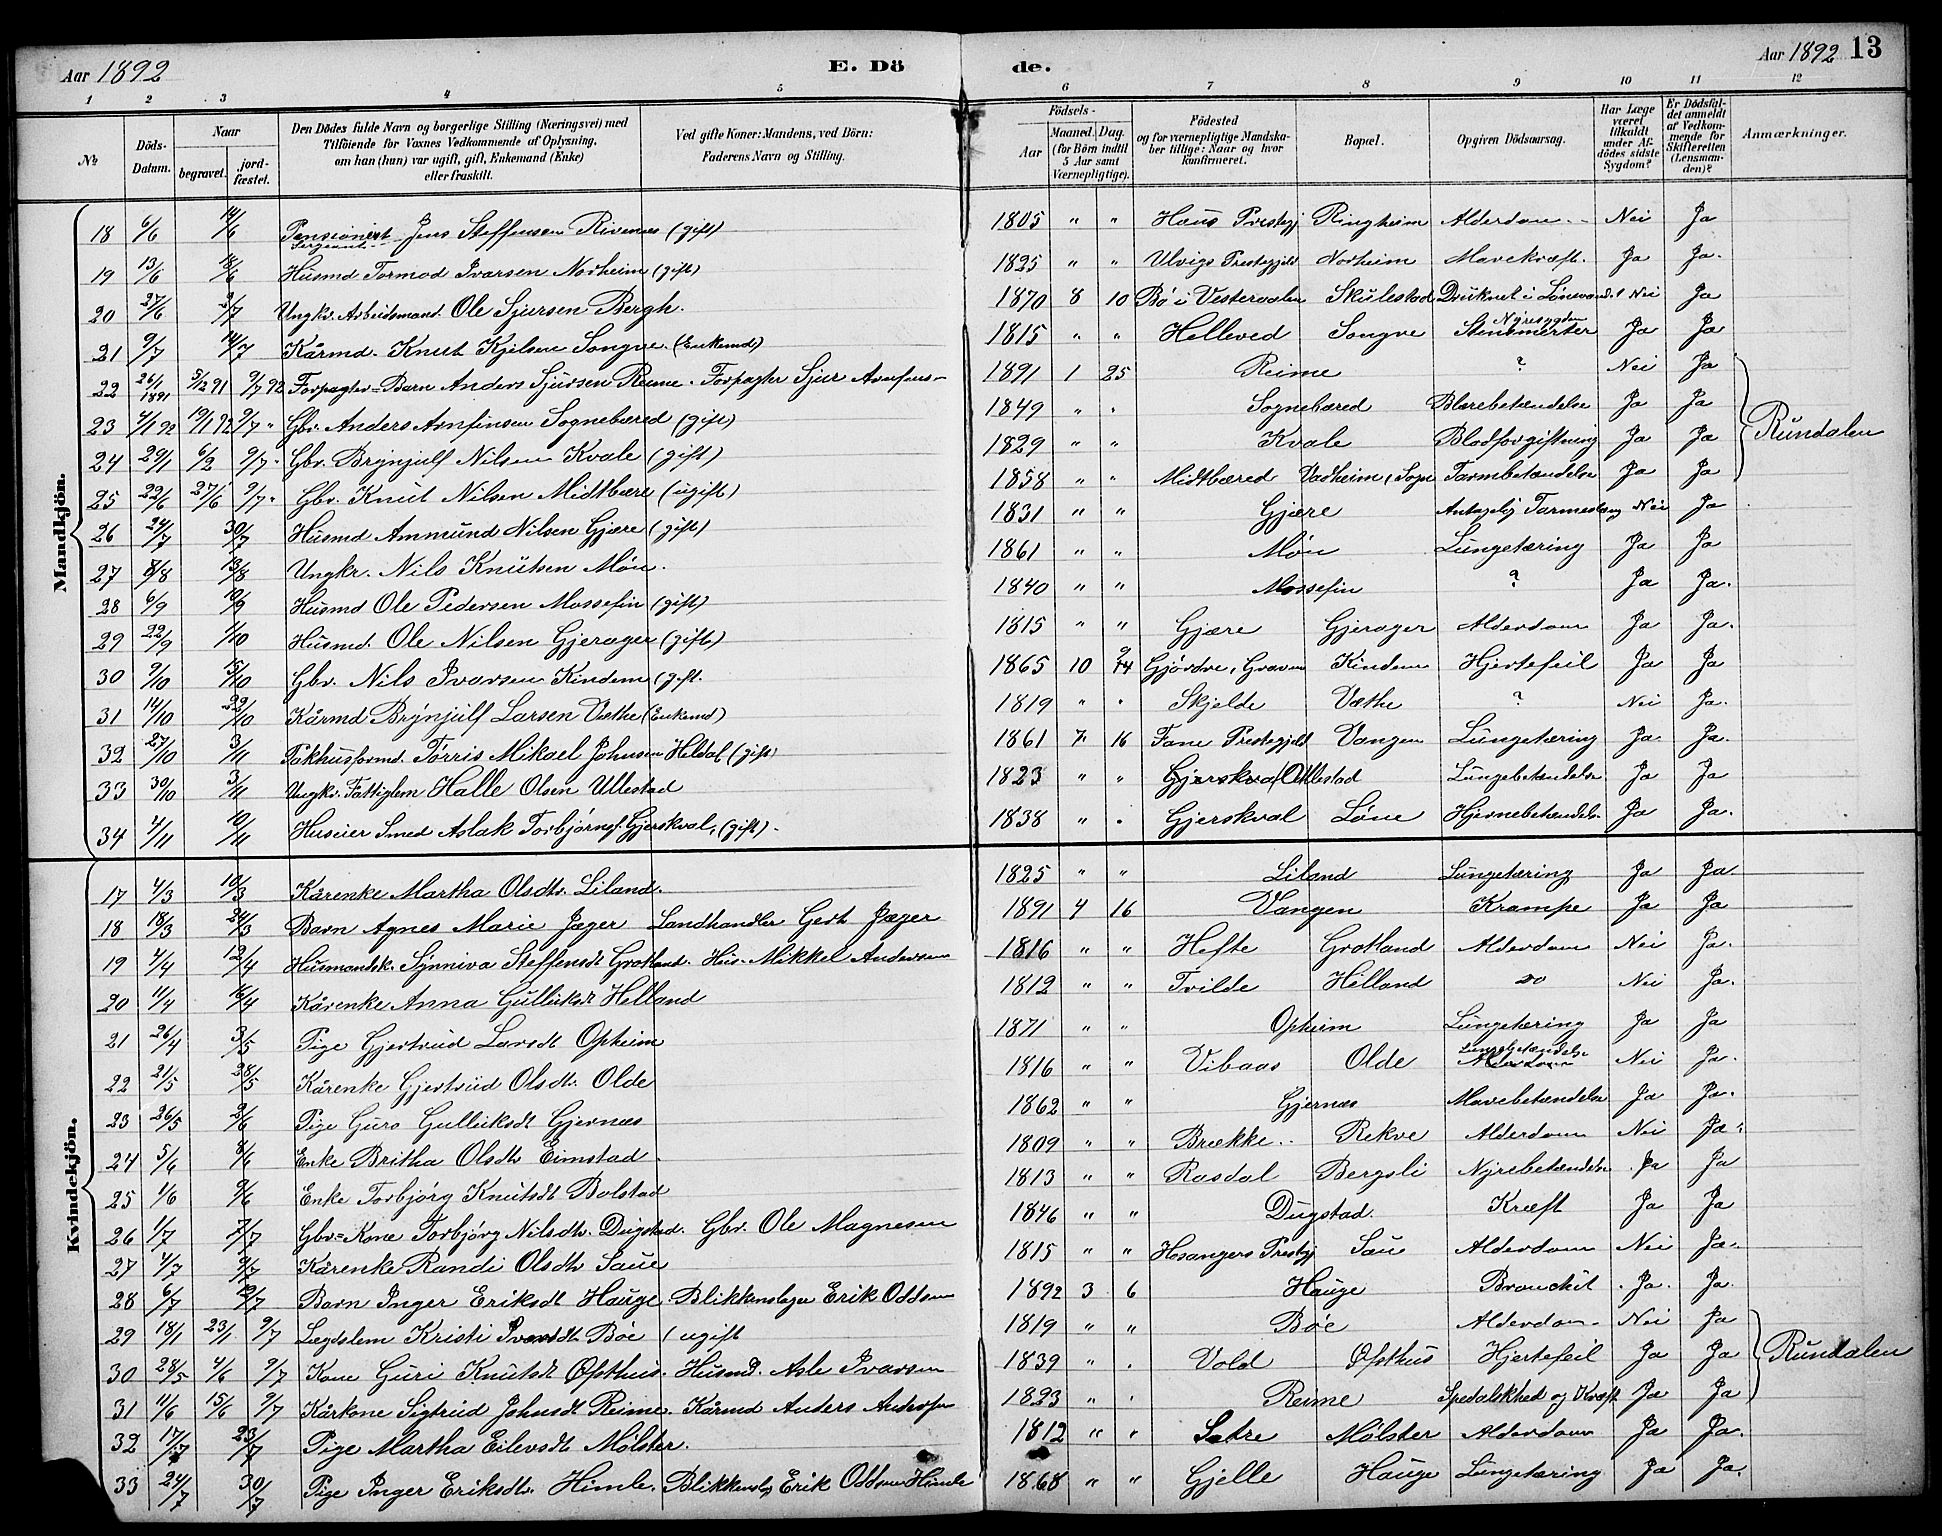 Aar 1892 E. Dö de. Aar 1892 13
1 2 3 4 5 6 7 8 9 10 11 12
№ Döds-Datum. Naar begravet. jordfæstet. Den Dödes fulde Navn og borgerlige Stilling (Næringsvei) med Tilföiende for Voxnes Vedkommende af Oplysning, om han (hun) var ugift, gift, Enkemand (Enke) eller fraskilt. Ved gifte Koner: Mandens, ved Börn: Faderens Navn og Stilling. Födsels- Aar Maaned. Dag. (for Börn indtil 5 Aar samt Værnepligtige). Födested og for værnepligtige Mandskaber tillige: Naar og hvor konfirmeret. Bopæl. Opgiven Dödsaarsag. Har Læge været tilkaldt under Afdödes sidste Sygdom? Er Dödsfaldet anmeldt af Vedkommende for Skifteretten (Lensmanden)? Anmærkninger.
Mandkjön.
18 6/6 14/6 Pensionist Sergeant Jens Steffensen Rivenes (gift) 1805 " " Haus Prestegj Ringheim Alderdom Nei Ja
19 13/6 18/6 Husmd Tormod Ivarsen Norheim (gift) 1825 " " Ulvigs Prestegjeld Norheim Mavekræft. Ja Ja.
20 27/6 2/7 Ungkr. Arbeidsmand. Ole Sjursen Bergh. 1870 8 10 Bø i Vesteraalen Skulestad Druknet i Lønevandet Nei Ja
21 9/7 14/7 Kårmd. Knut Kjelsen Songve. (Enkemd) 1815 " " Helleved Songve Nyresygdom Stensmerter Ja Ja
22 26/1 1891 5/12 91 9/7 92 Forpagter-Barn Anders Sjursen Reime. Forpagter Sjur Arnfins- 1891 1 25 Reime ? Nei Ja
23 4/1 92 19/1 92 9/7 " Gbr. Anders Arnfinsen Sognebæred (gift) 1849 " " Sognebæred Blærebetændelse Ja Ja Rundalen
24 29/1 6/2 9/7 " Gbr. Brynjulf Nilsen Kvale (gift) 1829 " " Kvale Blodforgiftning Ja Ja
25 22/6 27/6 9/7 " Gbr. Knut Nilsen Midtbære (ugift) 1858 " " Midtbæred Vadheim, Sogn Tarmbetændelse Ja Ja
26 24/7 30/7 Husmd Ammund Nilsen Gjære (gift) 1831 " " Gjære Antagelig Tarmeslyng Nei Ja
27 8/8 13/8 Ungkr. Nils Knutsen Møn. 1861 " " Møn Lungetæring Ja Ja
28 6/9 10/9 Husmd Ole Pedersen Mossefin (gift) 1840 " " Mossefin ? Ja Ja.
29 22/9 1/10 Husmd. Ole Nilsen Gjerager (gift) 1815 " " Gjære Gjerager Alderdom Ja Ja.
30 9/10 15/10 Gbr. Nils Ivarsen Kindem (gift. 1865 10 9 Gjørdre, Graven Kindem Hjertefeil Ja Ja
31 14/10 22/10 Kårmd Brynjulf Larsen Væthe (Enkemd) 1819 " " Skjelde Væthe ? Nei Ja.
32 27/10 3/11 Pakhusformd. Tørris Mikael Johnsen Heldal (gift) 1861 7 16 Fane Prestegjeld Vangen Lungetæring Ja Ja.
33 30/10 3/11 Ungkr. Fattiglem Halle Olsen Ullestad 1823 " " Gjerskval Ollestad Lungebetændelse Ja Ja
34 4/11 10/11 Huseier Smed Aslak Torbjørns. Gjerskval, (gift). 1838 " " Gjerskval Løne Hjernebetændels. Ja Ja.
Kvindekjön.
17 4/3 10/3 Kårenke Martha Olsdtr. Liland. 1825 " " Liland Lungetæring Ja Ja
18 18/3 24/3 Barn Agnes Marie Jæger Landhandler Gert Jæger 1891 4 16 Vangen Krampe Ja Ja
19 4/4 12/4 Husmandsk. Synniva Steffensdt Grotland. Hus. Mikkel Andersen 1816 " " Hefte Grotland Alderdom Nei Ja.
20 11/4 16/4 Kårenke Anna Gulleiksdt Helland 1812 " " Tvilde Hilland do Nei Ja.
21 26/4 3/5 Pige Gjertrud Larsdt Opheim 1871 " " Opheim Lungetæring Ja Ja
22 21/5 28/5 Kårenke Gjertrud Olsdtr. Olde 1816 " " Vibaas Olde Lungebetændelse Alderdom Nei Ja.
23 26/5 2/6 Pige Guro Gulleiksdt Gjernæs 1862 " " Gjernæs Mavebetændelse Ja Ja.
24 5/6 8/6 Enke Britha Olsdtr Eimstad. 1809 " " Brække Rekve Alderdom Nei Ja.
25 1/6 9/6 Enke Torbjørg Knutsdt Bolstad 1813 " " Rasdal Bergsli Nyrebetændelse Ja Ja
26 1/7 7/7 Gbr=Kone Torbjørg Nilsdtr. Dugstad. Gbr. Ole Magnesen 1846 " " Dugstad. Kræft Ja Ja
27 4/7 9/7 Kårenke Randi Olsdtr Saue 1815 " " Hosangers Prestgj Sau Alderdom Nei Ja.
28 6/7 12/7 Barn Inger Eriksdt Hauge. Blikkenslager Erik Oddsen 1892 3 6 Hauge Bronchit Ja. Ja.
29 18/1 23/1 9/7 Lægdslem Kristi Ivarsdt Bøe (ugift 1819 " " Bøe Alderdom Nei Ja
30 28/5 4/6 9/7 Kone Guri Knutsdt Øfsthus. Husmd. Asle Ivarsen 1839 " " Vold Øfsthus Hjertefeil Ja Ja Rundalen
31 11/6 15/6 9/7 Kårkone Sigtrud Johnsdt Reime. Kårmd Anders Andersen 1823 " " Reime Spedalskhed og Kræft Ja Ja
32 17/7 23/7 Pige Martha Eilevsdt Mølster. 1812 " " Sætre Mølster Alderdom Ja Ja.
33 24/7 30/7 Pige Inger Eriksdtr. Himle. Blikkenslg Erik Oddsen Himle 1868 " " Gjelle Hauge Lungetæring Ja Ja.